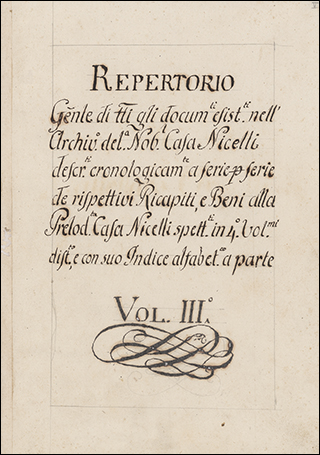 REPERTORIO
Gen̄le di t̄ti gli docum.ti esist.ti nell'
Archiv.o del.a Nob.l Casa Nicelli
descr.ti cronologicam.te a serie p serie
de rispettivi Ricapiti, e Beni alla
Prelod.ta Casa Nicelli spett.ti in 4.o Vol.mi
dist.i, e con suo Indice alfabet.co a parte
VOL. III.o